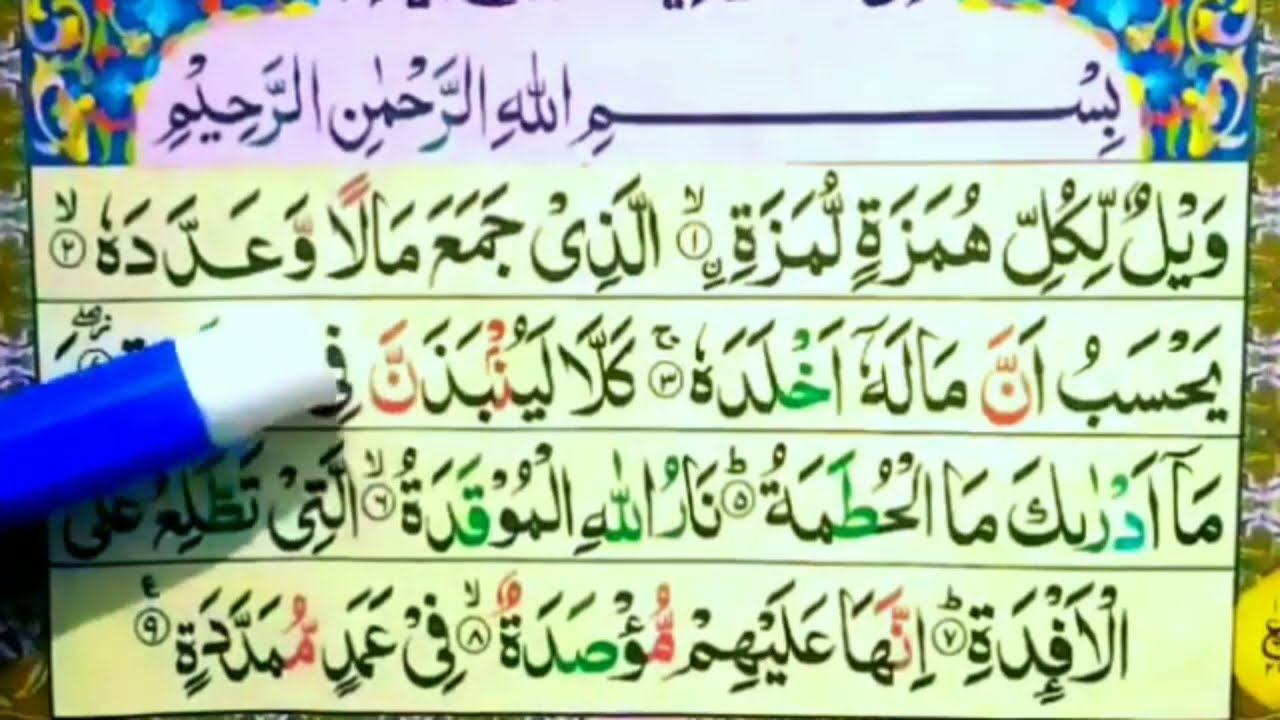 بِسْمِ اللهِ الرَّحْمٰنِ الرَّحِيْمِ
وَيْلٌ لِّكُلِّ هُمَزَةٍ لُّمَزَةِ ۙ﴿۱﴾ الَّذِىْ جَمَعَ مَالًا وَّعَدَّدَهٗ ۙ﴿۲﴾
يَحْسَبُ اَنَّ مَالَهٗۤ اَخْلَدَهٗ ۚ﴿۳﴾ كَلَّا لَيُنْۢبَذَنَّ فِى
مَاۤ اَدْرٰىكَ مَا الْحُطَمَةُ ؕ﴿۵﴾ نَارُ اللهِ الْمُوْقَدَةُ ۙ﴿۶﴾ الَّتِىْ تَطَّلِعُ عَلَى
الْاَفْـِٕدَةِ ؕ﴿۷﴾ اِنَّهَا عَلَيْهِمْ مُّؤْصَدَةٌ ۙ﴿۸﴾ فِىْ عَمَدٍ مُّمَدَّدَةٍ ﴿۹﴾